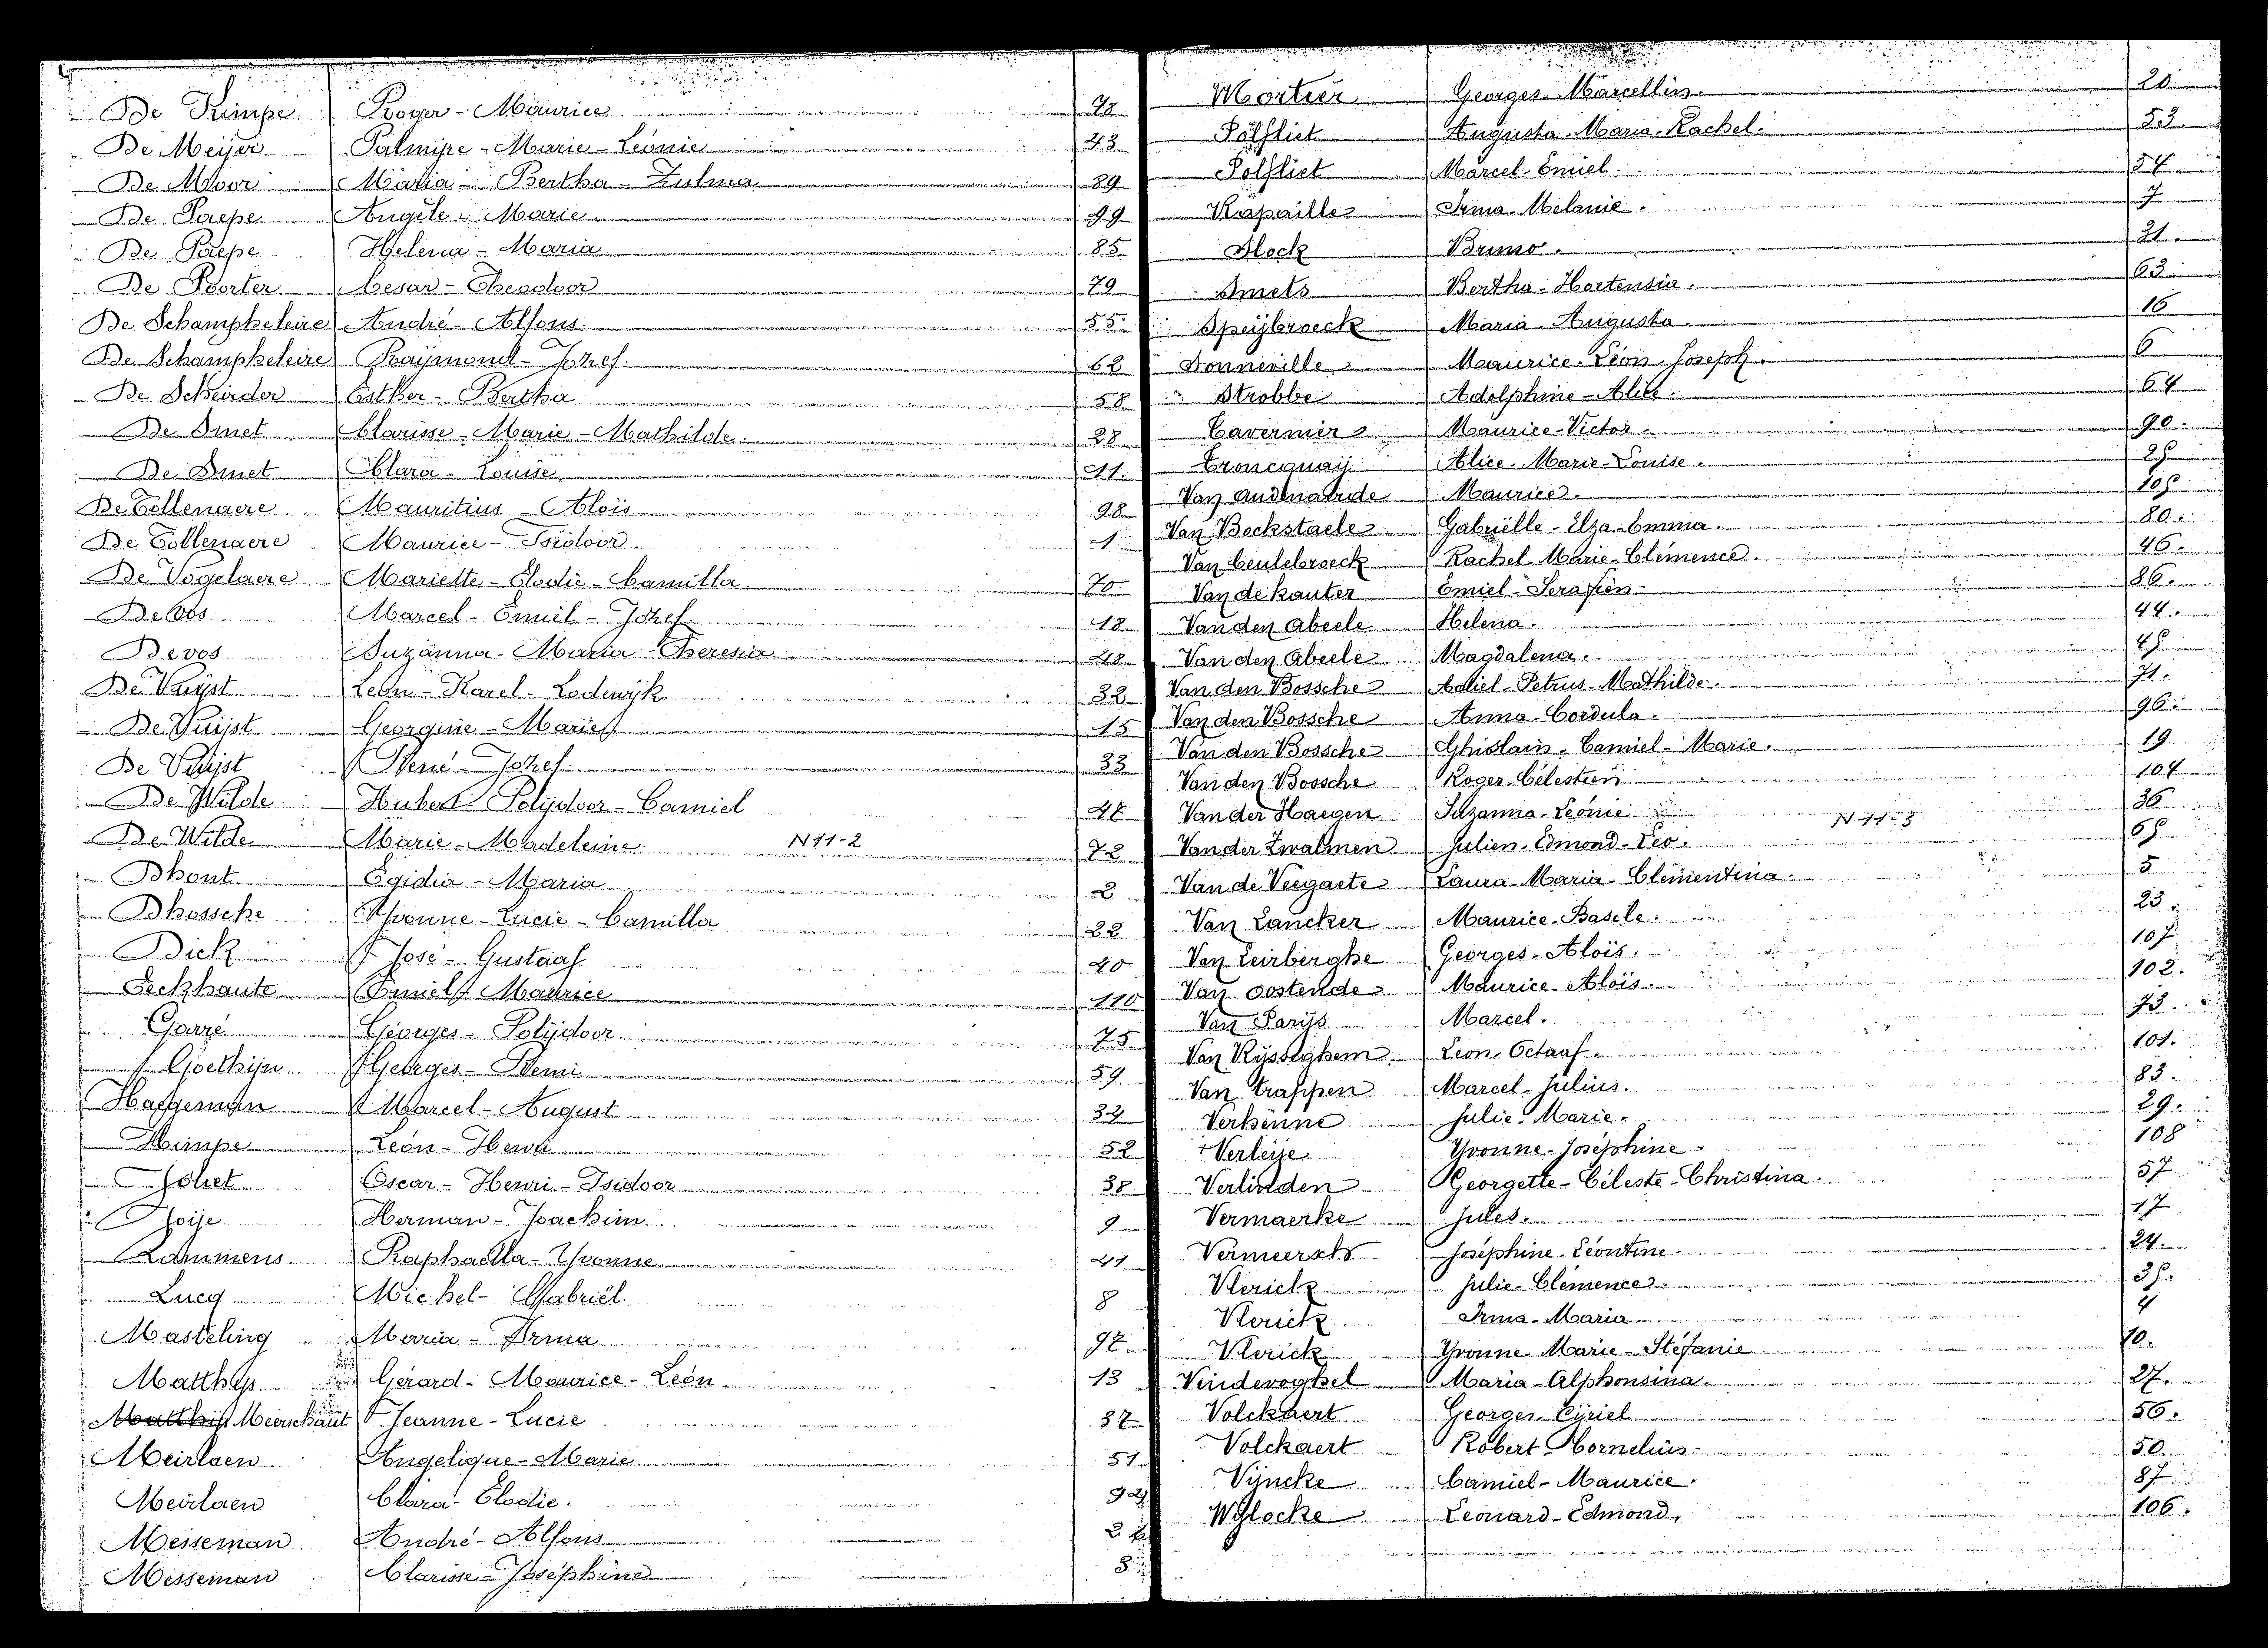 De Kimpe. Roger - Maurice 78
De Meijer Palmire - Marie - Léonie 43
De Moor Maria - Bertha - Zulma 89
De Paepe Angèle - Marie 99
De Paepe Helena - Maria 85
De Poorter Cesar - Theodoor 79
De Schampheleire André - Alfons. 55
De Schampheleire Raijmond - Jozef. 62
De Scheirder Esther - Bertha 58
De Smet Clarisse - Marie - Mathilde. 28
De Smet Clara - Louise 11.
De Tollenaere Mauritius - Aloïs 98
De Tollenaere Maurice - Isidoor. 1
De Vogelaere Mariette - Elodie - Camilla 70
De Vos Marcel - Emiel - Jozef 18
Devos Suzanna - Maria - Theresia 48
De Vuijst Léon - Karel - Lodewijk 32
De Vuijst Georgine - Marie 15
De Vuijst René - Jozef 33
De Wilde Hubert Polijdoor - Camiel
De Wilde Marie - Madeleine N 11-2 72
Dhont Egidia - Maria 2
Dhossche Yvonne - Lucie - Camilla 22
Dick José - Gustaaf 40
Eeckhaute Emiel Maurice 110
Garré Georges - Polijdoor. 75
Goethijn Georges - Remi 59
Haegeman Marcel - August 34
Heirnpe Léon - Henri 52
Joliet Oscar - Henri - Isidoor 38
Joije Herman - Joachim 9
Lammens Raphaëlla - Yvonne 41
Lucq Michel - Gabriël. 8
Masteling Maria - Irma
Matthys Gérard - Maurice - Léon. 13
Matthijs Meirschaut Jeanne - Lucie 37
Meirlaen Angelique - Marie 51
Meirlaen Clara - Elodie.
Messeman André - Alfons
Messeman Clarisse - Joséphine
Mortier Georges - Marcellin 20
Polfliet Augusta - Maria - Rachel. 53
Polfliet Marcel - Emiel. 54
Rapaille Irma - Melanie. 7
Block Bruno. 31
Smets Bertha - Hortensia. 63
Speijbroeck Maria - Augusta. 16
Sonneville Maurice - Léon - Joseph. 6
Strobbe Adolphine - Alice. 64
Tavernier Maurice - Victor. 90
Troncquaij Alice - Marie - Louise. 25
Van Audenaerde Maurice. 105
Van Bockstaele Gabriëlle - Elza - Emma. 80
Van Ceulebroeck Rachel - Marie - Clémence. 46
Van de Kauter Emiel - Serafien 86
Van den Abeele Helena. 44
Van den Abeele Magdalena. 45
Van den Bossche Adiel - Petrus - Mathilde. 71.
Van den Bossche Anna - Cordula. 96
Van den Bossche Ghislain - Camiel - Marie. 19
Van den Bossche Roger Célestien 104
Van der Haegen Suzanna - Leonie 36
Van der Zwalmen Julien - Edmond - Leo. N 11-3 65
Van de Veegaete Laura - Maria - Clementina. 5
Van Lancker Maurice - Basile. 23
Van Leirberghe Georges - Aloïs. 107
Van Oostende Maurice - Aloïs. 102.
Van Parijs Marcel. 73
Van Rijsseghem Léon - Octaaf. 101.
Van Trappen Marcel - Julius. 83.
Verhenne Julie - Marie. 29.
Verleije Yvonne - Joséphine 108
Verlinden Georgette - Céleste - Christina. 57
Vermaerke Jules. 17
Vermeersch Joséphine - Léontine. 24.
Vlerick Julie - Clémence. 35.
Vlerick Irma - Maria 4
Vlerick Yvonne - Marie - Stéfanie 10.
Vindevoghel Maria - Alphonsina. 27.
Volckaert Georges - Cijriel 56.
Volckaert Robert Cornelius 50.
Vijncke Camiel - Maurice. 87
Wijlocke Leonard - Edmond. 106.